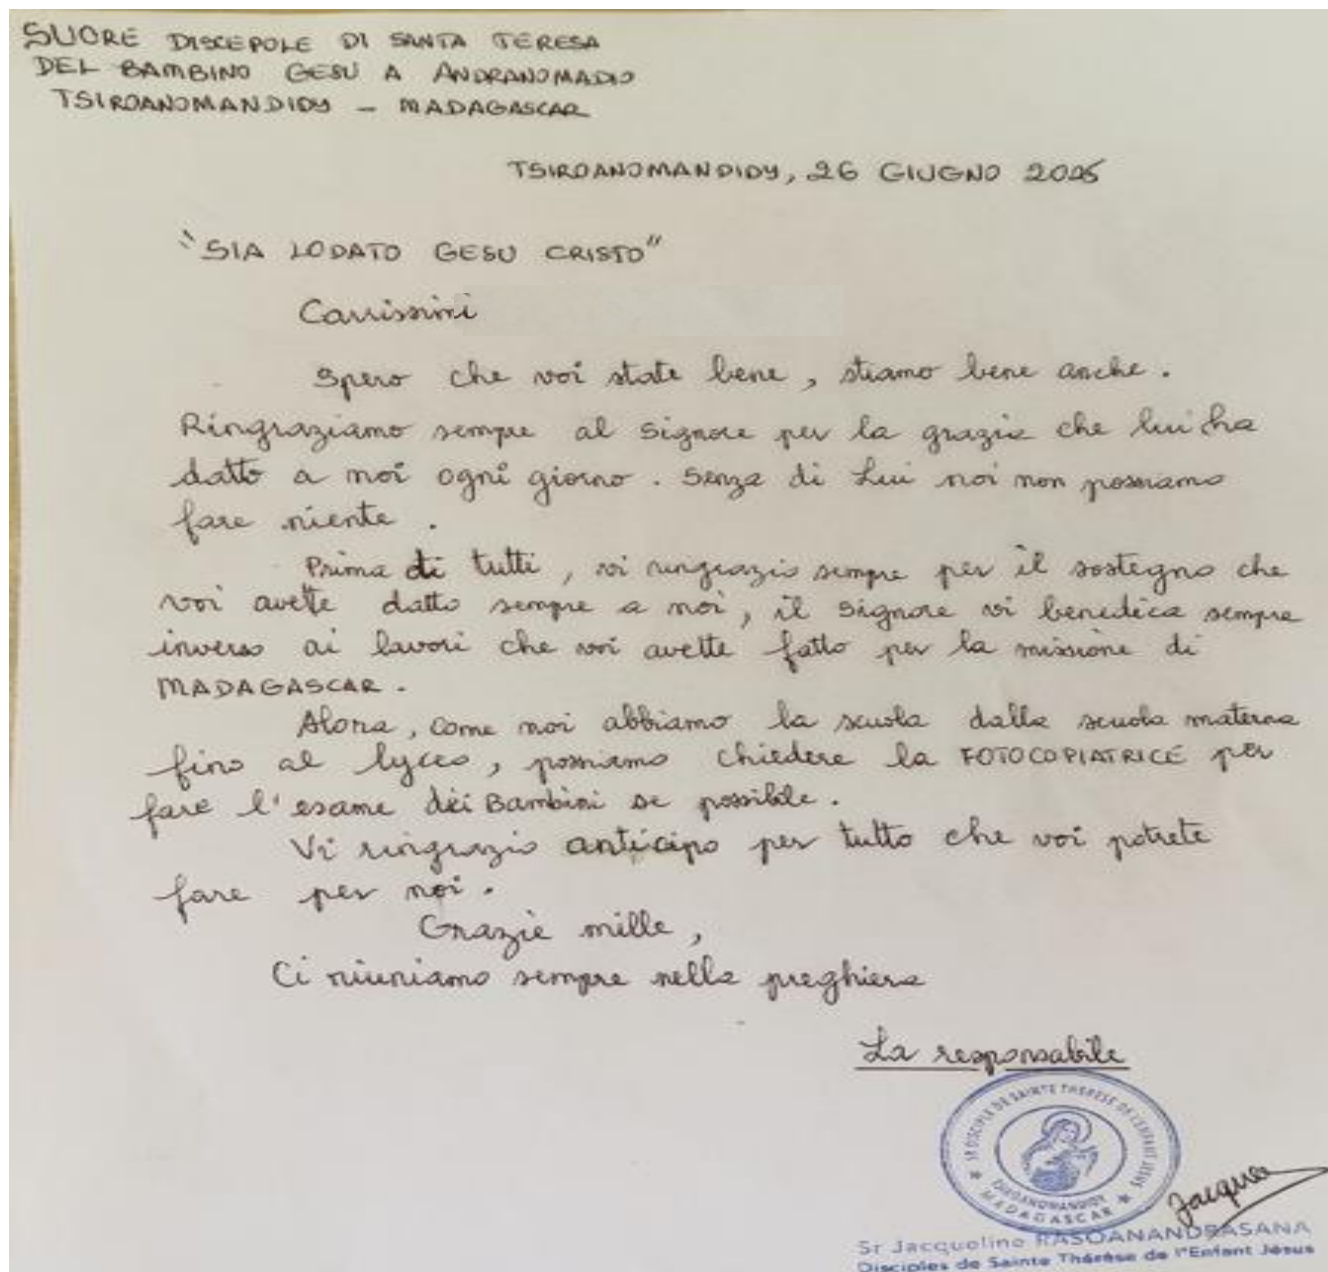 SUORE DISCEPOLE DI SANTA TERESA
DEL BAMBINO GESU A ANDRANOMADIO
TSIROANOMANDIDY - MADAGASCAR
TSIROANOMANDIDY, 26 GIUGNO
"SIA LODATO GESU CRISTO"
Carissimi
Spero che voi state bene, stiamo bene anche.
Ringraziamo sempre al Signore per la grazia che lui ha
datto a noi ogni giorno. Senza di Lui noi non possiamo
fare niente.
Prima di tutti, vi ringrazio sempre per il sostegno che
voi avette datto sempre a noi, il Signore vi benedica sempre
inverso ai lavori che voi avette fatto per la missione di
MADAGASCAR.
Alora, come noi abbiamo la scuola dalla scuola materna
fino al lyceo, possiamo chiedere la FOTOCOPIATRICE per
fare l'esame dei Bambini se possibile.
Vi ringrazio anticipo per tutto che voi potrete
fare per noi.
Grazie mille,
Ci riuniamo sempre nella preghiera
La responsabile
SR DISCIPLE DE SAINTE THERESE DE L'ENFANT JESUS
TSIROANOMANDIDY
MADAGASCAR
Jacque
Sr Jacqueline RASOANANDRASANA
Disciples de Sainte Thérèse de l'Enfant Jésus